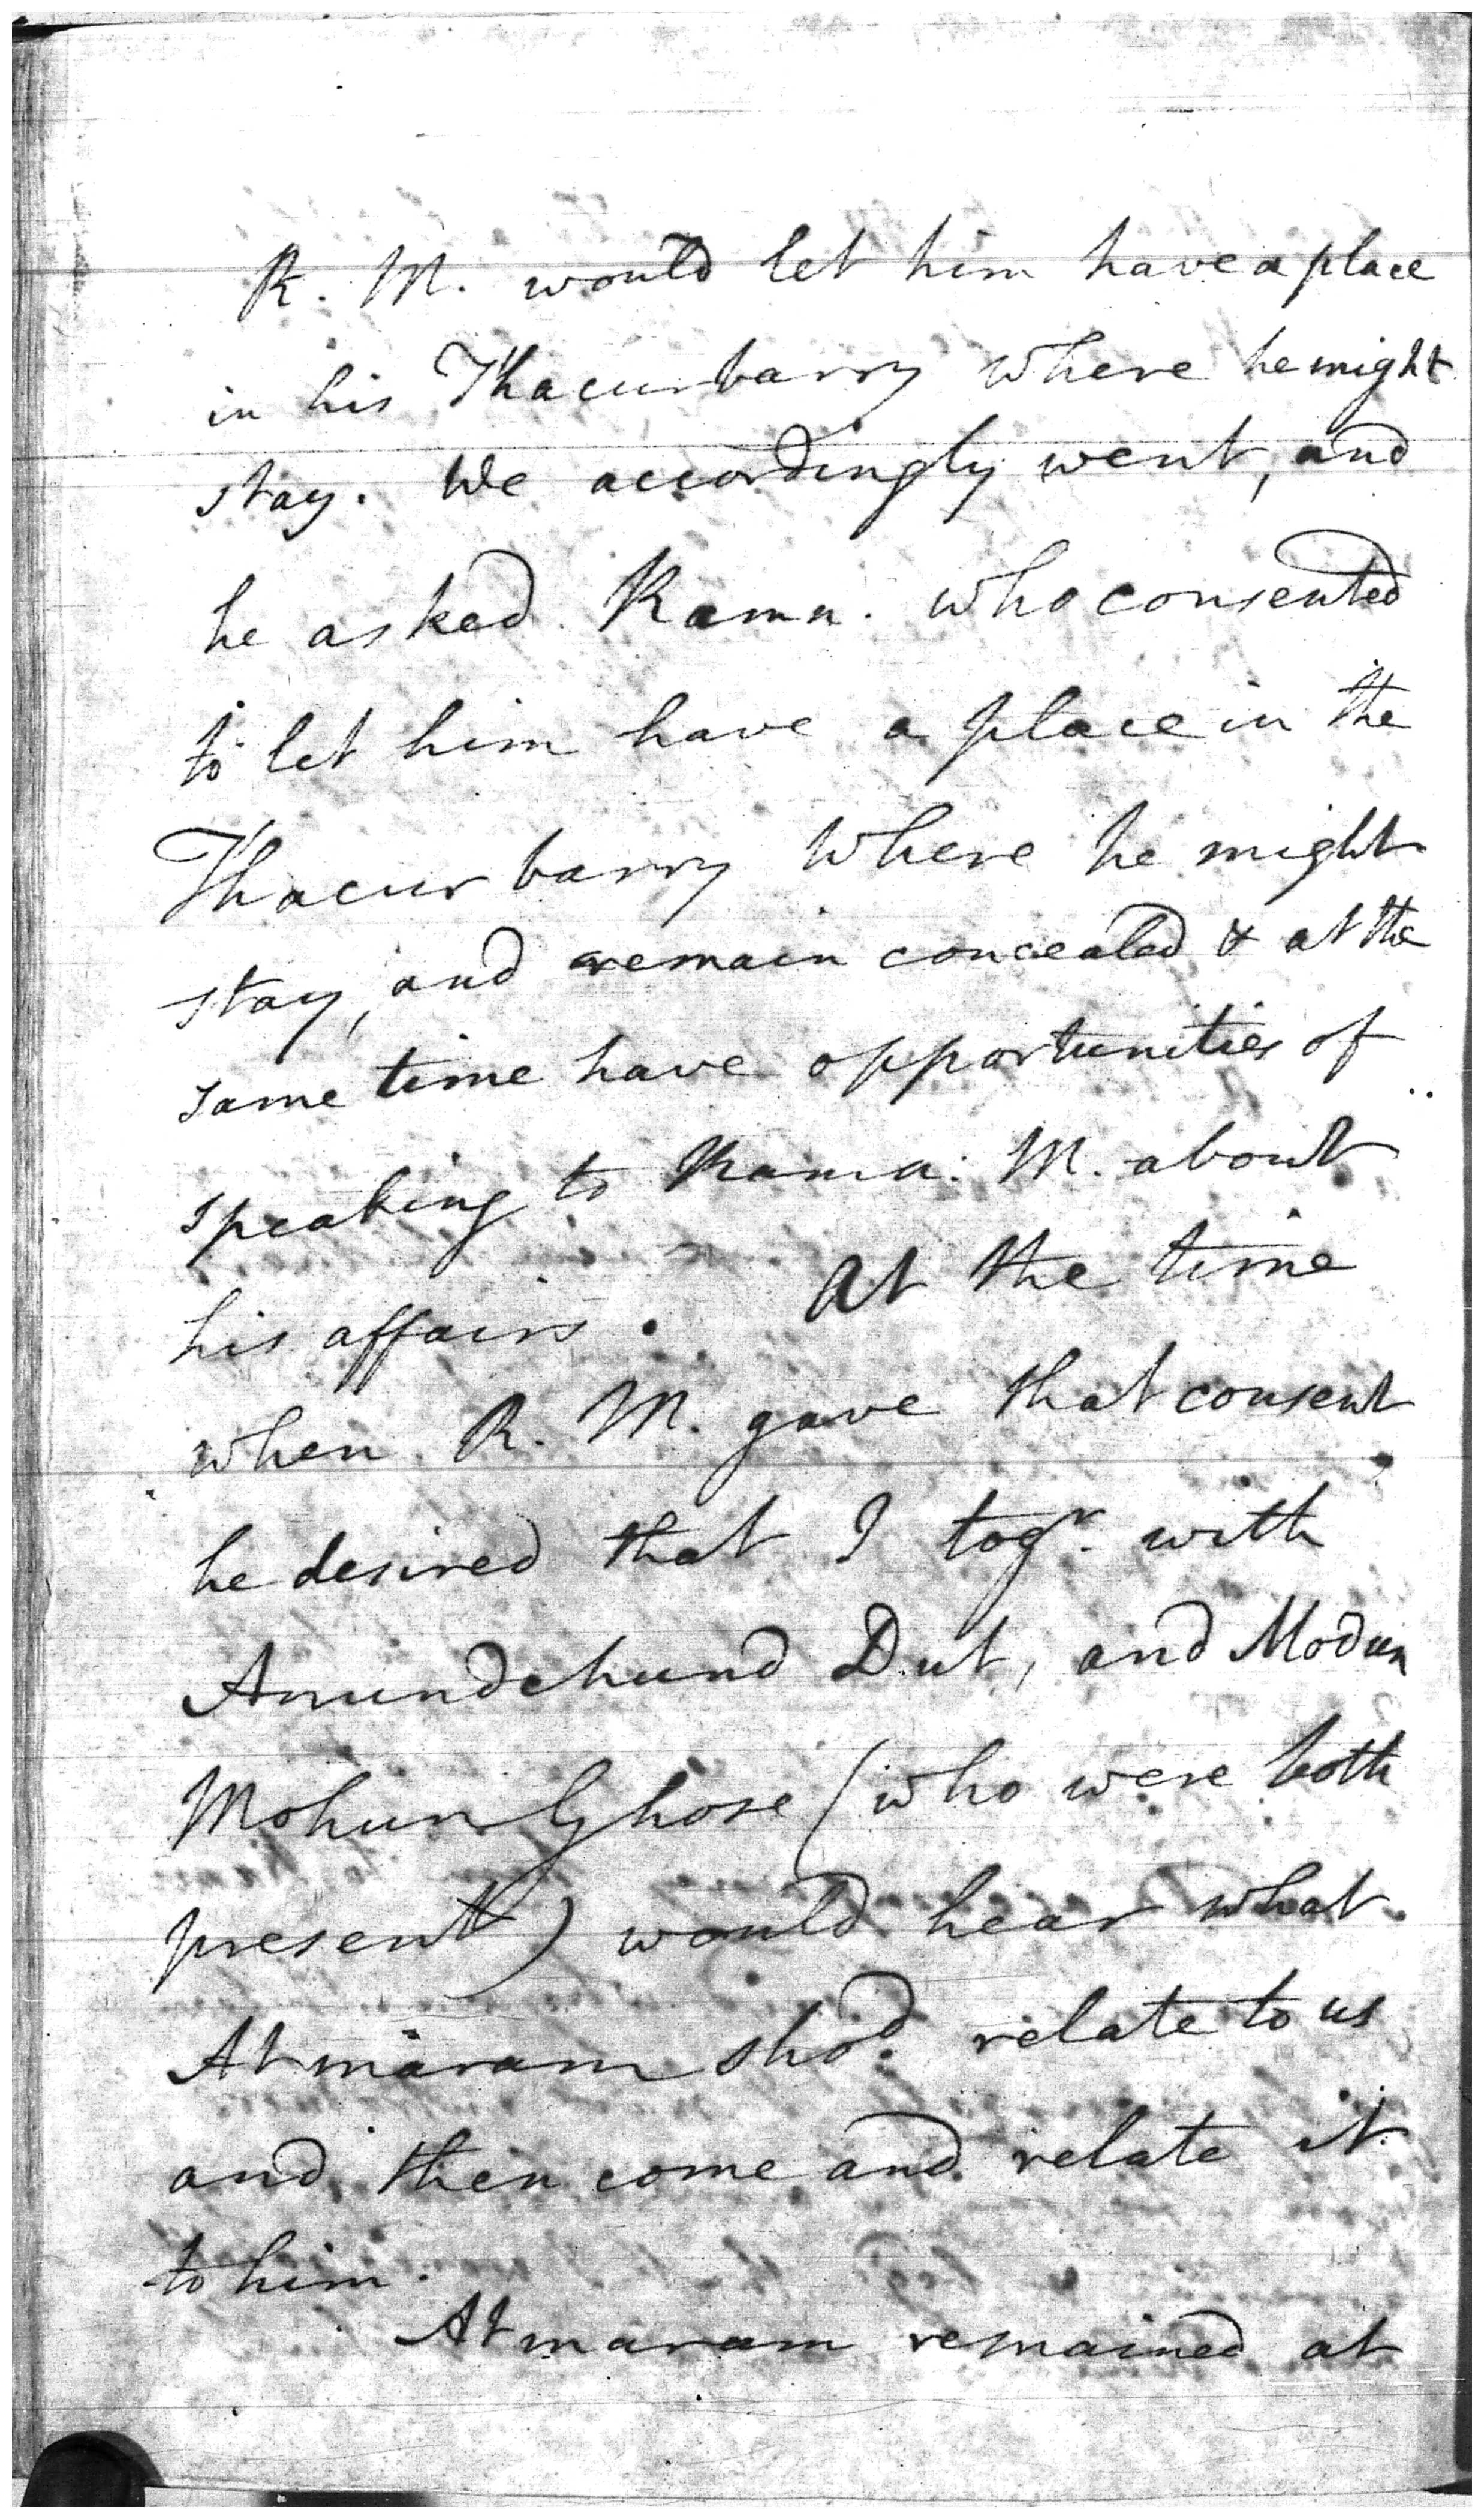 R. M. would let him have a place
in his Thacurbarry where he might
stay. We accordingly went, and
he asked Rama. who consented
to let him have a place in the
Thacurbarry where he might
stay, and remain concealed & at the
same time have opportunities of
speaking to Rama: M. about
his affairs. At the time
when R. M. gave that consent,
he desired that I togr. with
Anundchund Dut, and Modun
Mohun Ghose (who were both
present) would hear what
Atmaram shod. relate to us
and then come and relate it
to him.
Atmaram remained at